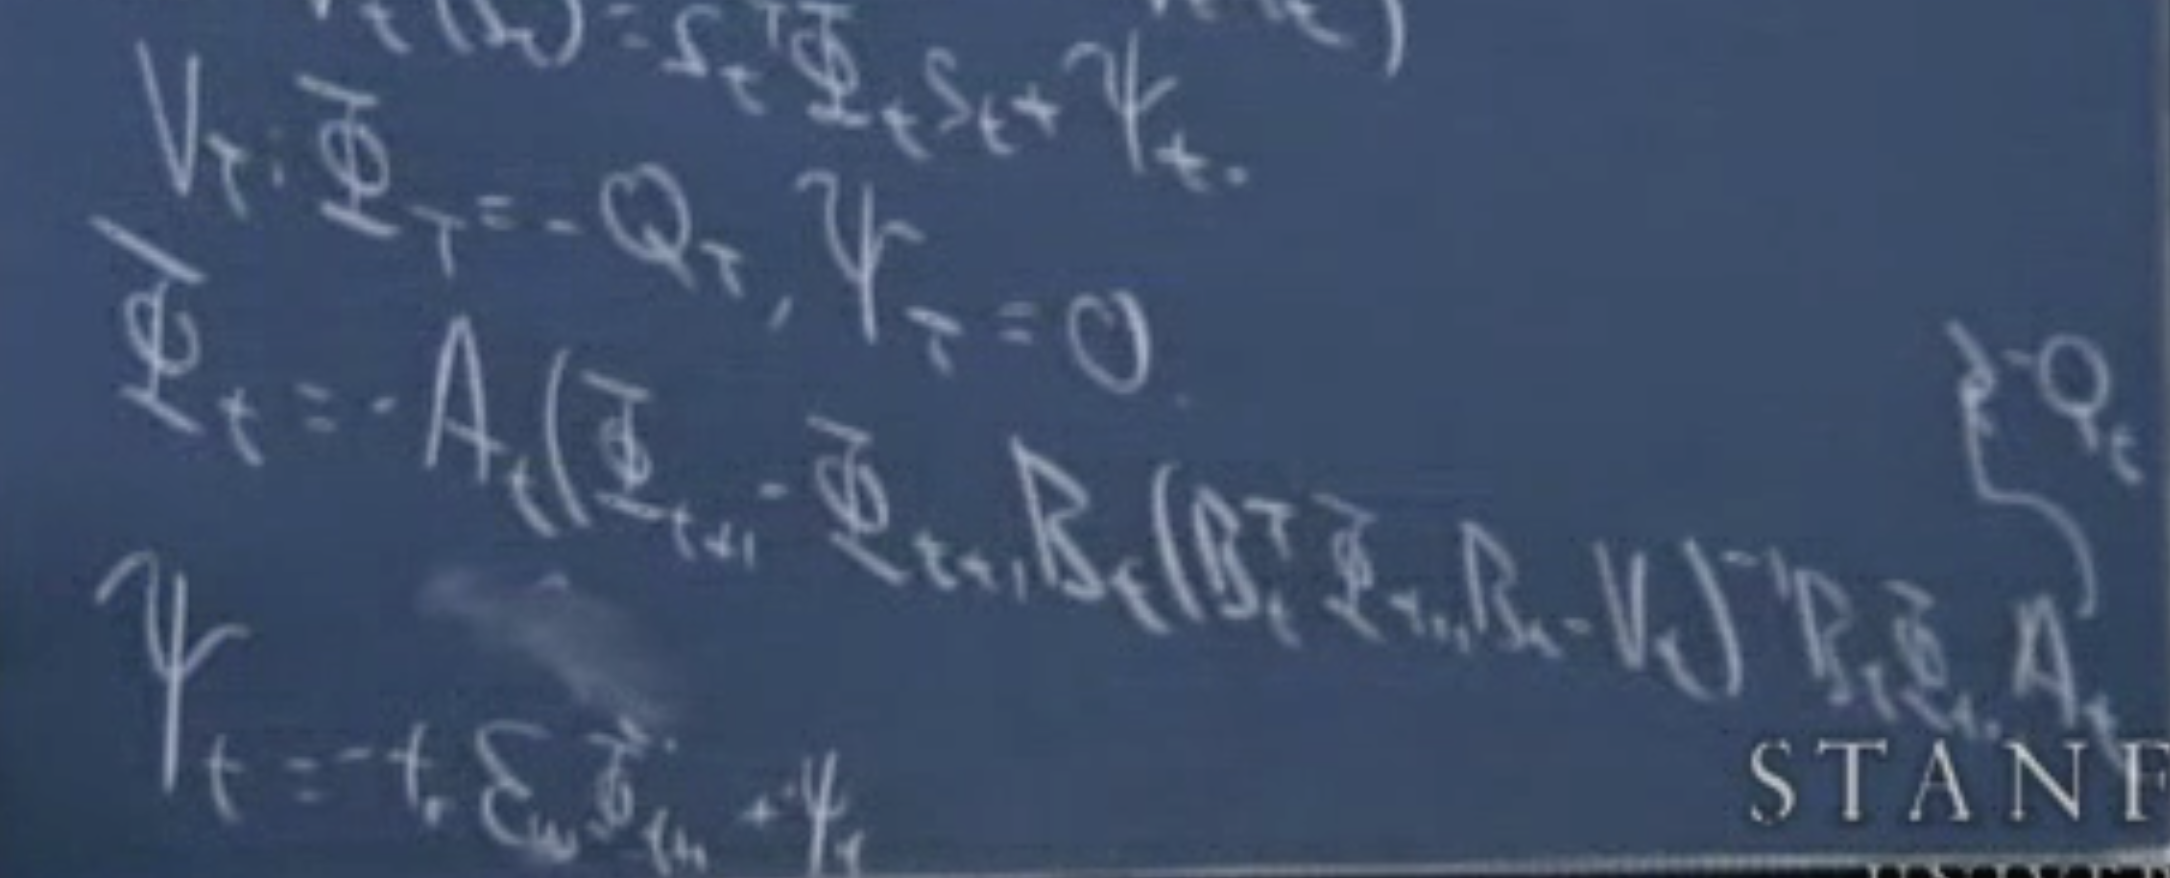 V_t(s_t) = s_t^T Φ_t s_t + Ψ_t.
V_T: Φ_T = -Q_T, Ψ_T = 0
Φ_t = -A_t(Φ_{t+1} - Φ_{t+1} B_t (B_t^T Φ_{t+1} B_t - V_t)^{-1} B_t Φ_{t+1} A_t) - Q_t
Ψ_t = -tr Σ_w Φ_{t+1} + Ψ_t
STANF